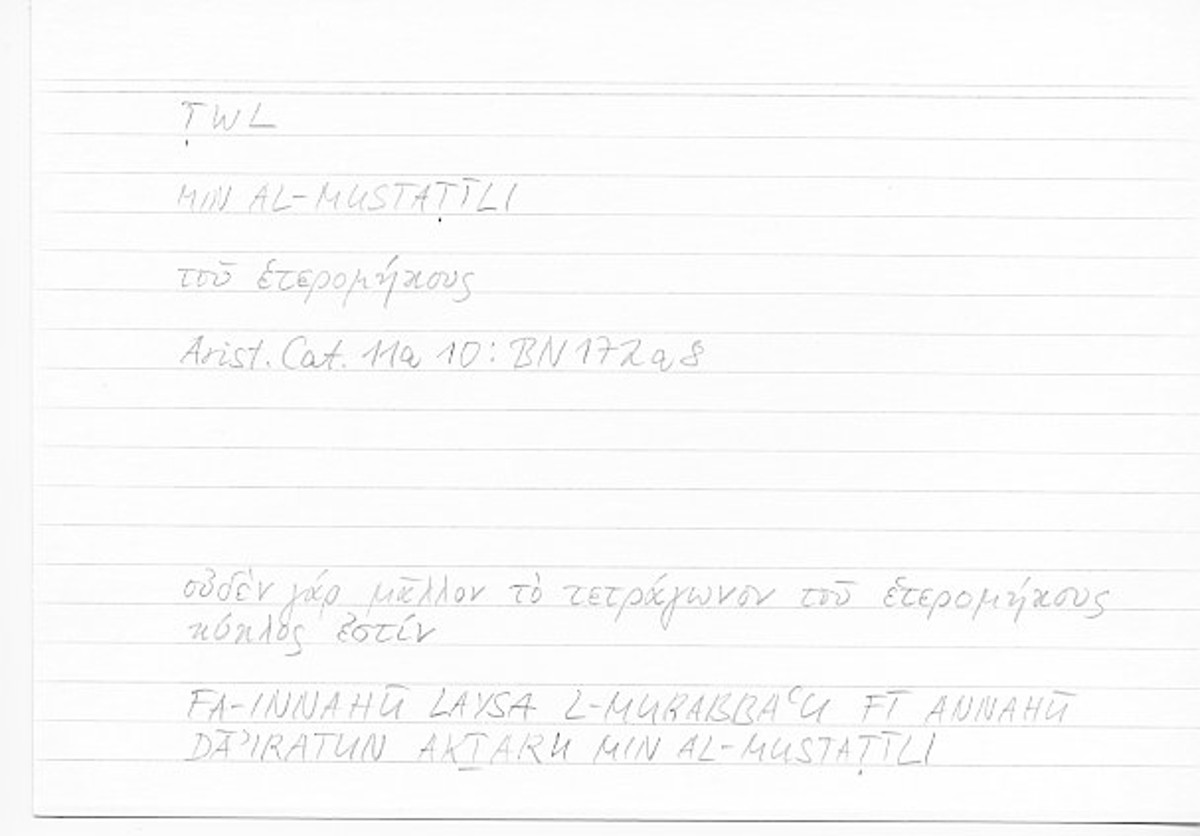 ṬWL
MIN AL-MUSTAṬĪLI
τοῦ ἑτερομήκους
Arist. Cat. 11a 10: BN 172 a 8
οὐδὲν γάρ μᾶλλον τὸ τετράγωνον τοῦ ἑτερομήκους
κύκλος ἐστίν
FA-INNAHŪ LAYSA L-MURABBAʿU FĪ ANNAHŪ
DĀʾIRATUN AKṮARU MIN AL-MUSTAṬĪLI